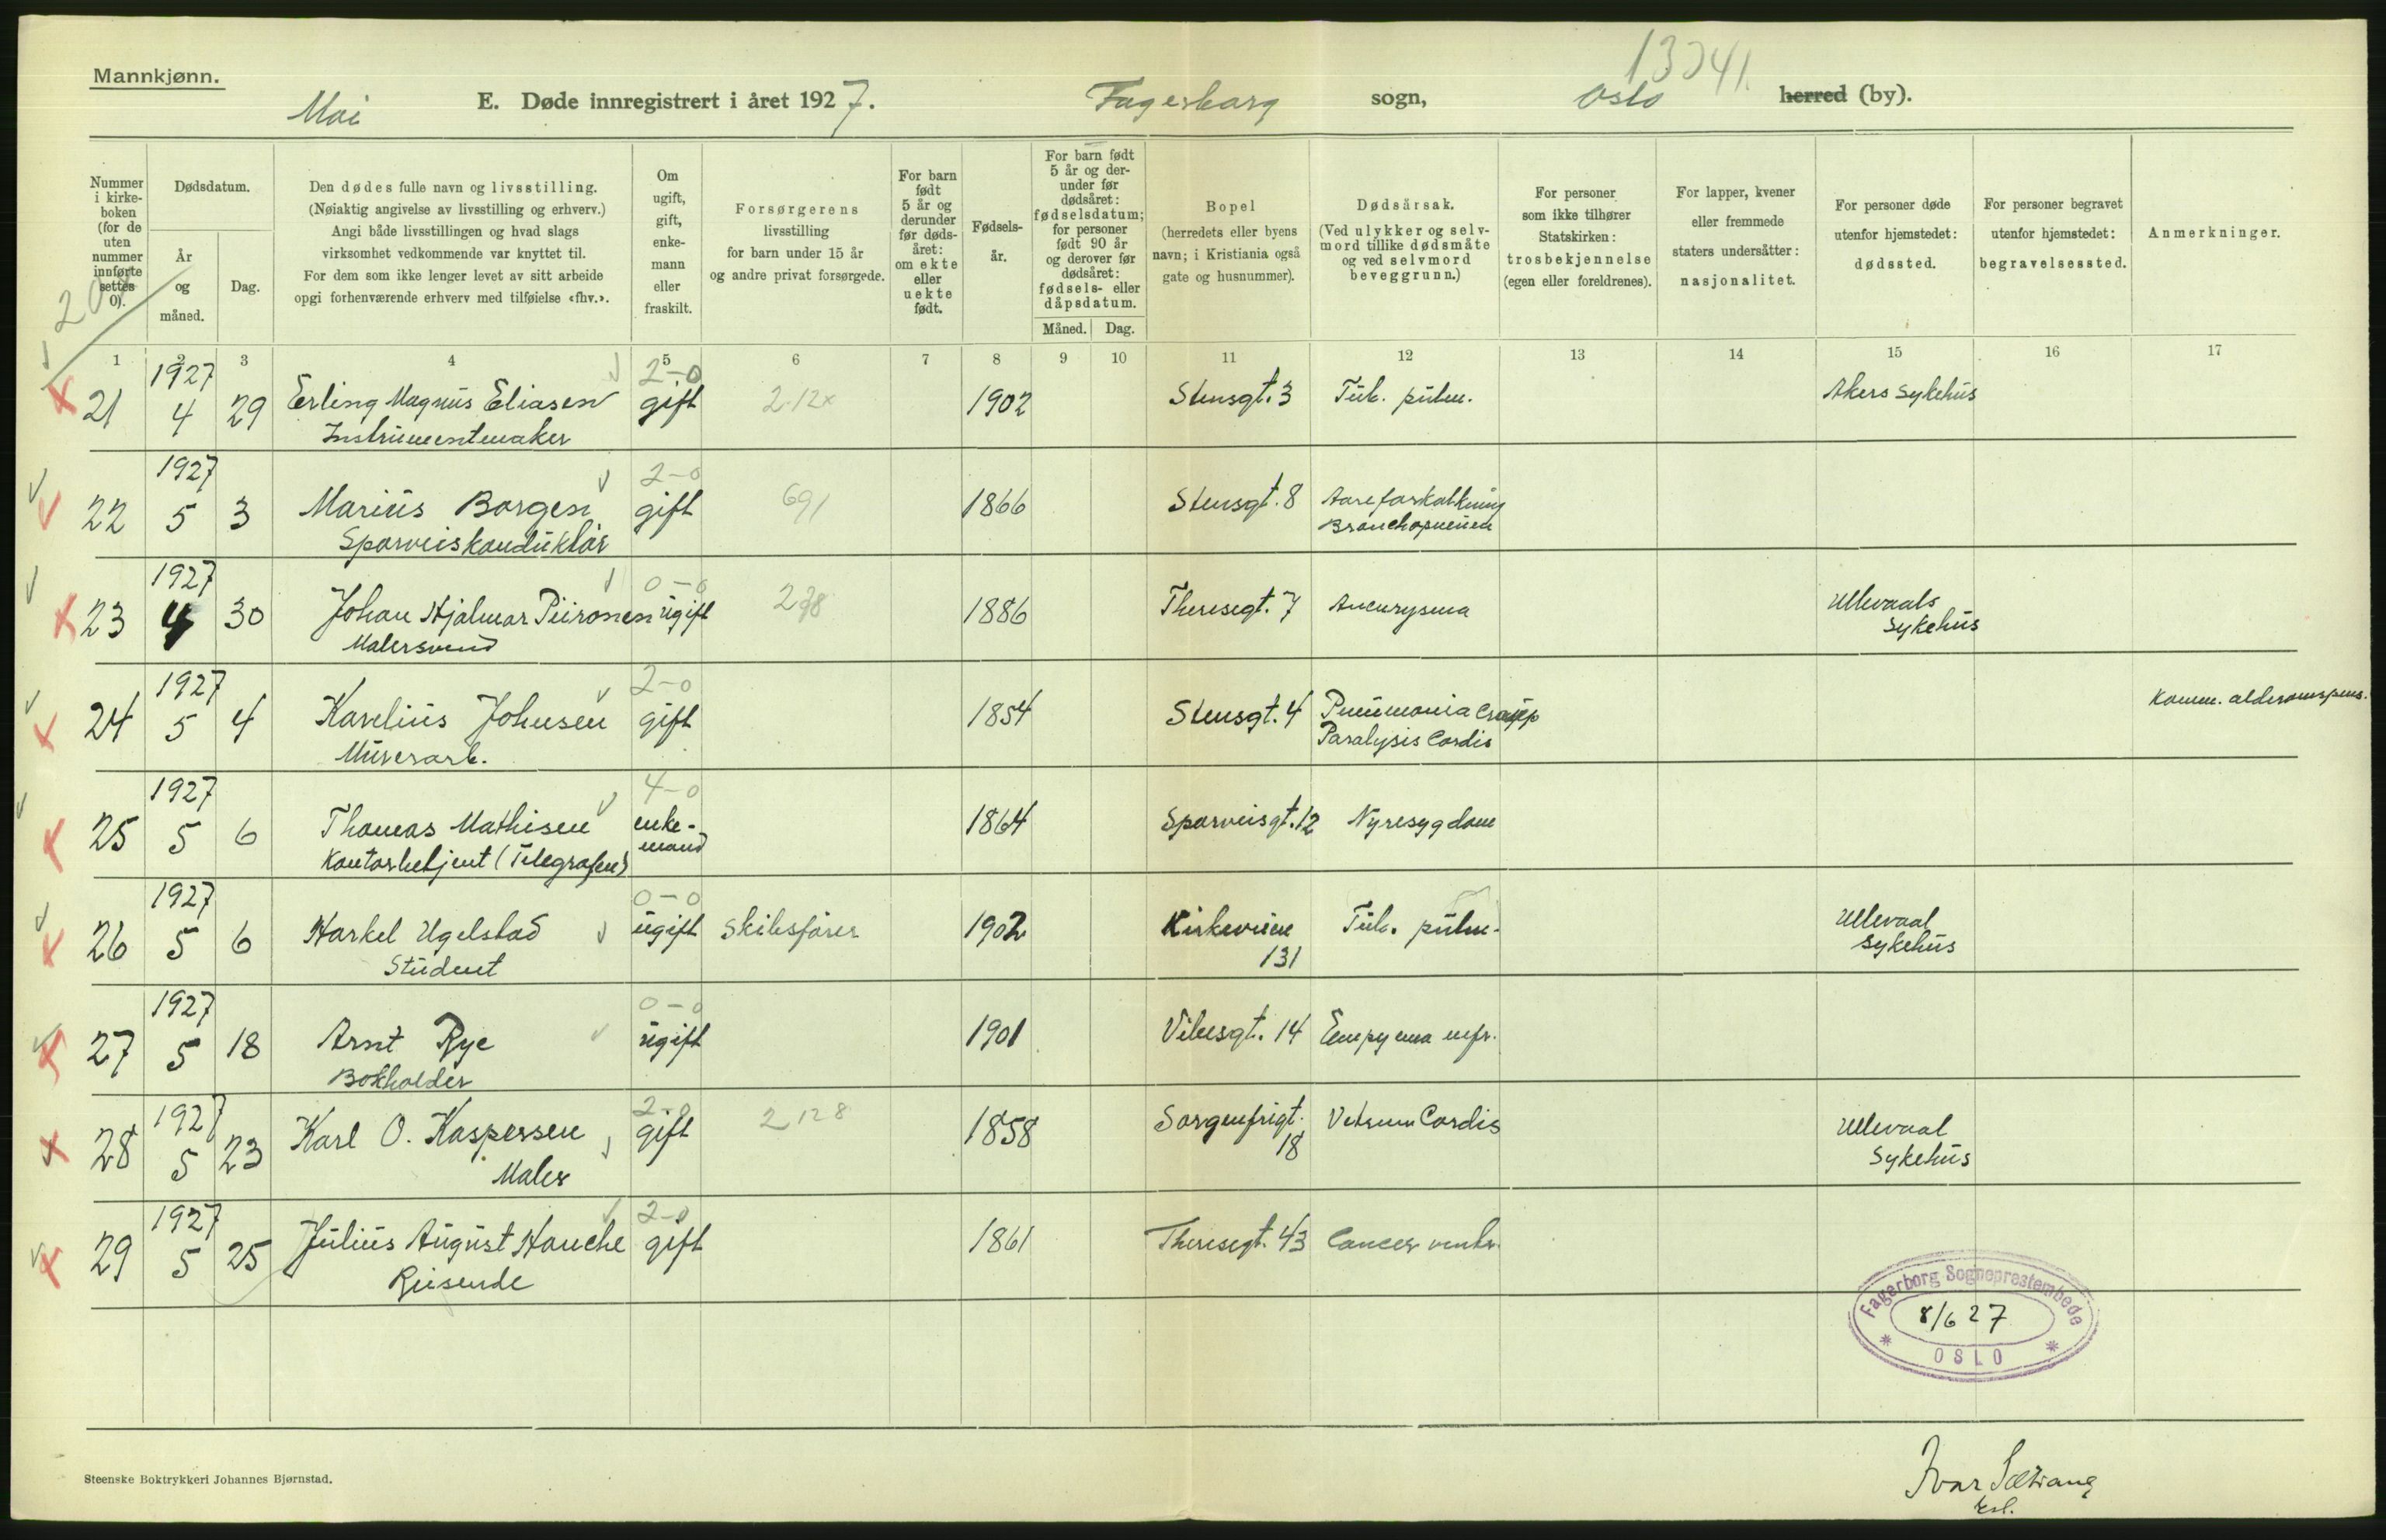 Mannkjønn.
13341.
Mai E. Døde innregistrert i året 1927. Fagerborg sogn, Oslo herred (by).
Nummer i kirkeboken (for de uten nummer innførte settes 0).
Dødsdatum.
År og måned.
Dag.
Den dødes fulle navn og livsstilling.
(Nøiaktig angivelse av livsstilling og erhverv.)
Angi både livsstillingen og hvad slags
virksomhet vedkommende var knyttet til.
For dem som ikke lenger levet av sitt arbeide
opgi forhenværende erhverv med tilføielse «fhv.».
Om ugift, gift, enkemann eller fraskilt.
Forsørgerens
livsstilling
for barn under 15 år
og andre privat forsørgede.
For barn født 5 år og derunder før dødsåret: om ekte eller uekte født.
Fødselsår.
For barn født 5 år og derunder før dødsåret: fødselsdatum; for personer født 90 år og derover før dødsåret: fødsels- eller dåpsdatum.
Måned. Dag.
Bopel
(herredets eller byens
navn; i Kristiania også
gate og husnummer).
Dødsårsak.
(Ved ulykker og selvmord tillike dødsmåte og ved selvmord beveggrunn.)
For personer
som ikke tilhører
Statskirken:
trosbekjennelse
(egen eller foreldrenes).
For lapper, kvener
eller fremmede
staters undersåtter:
nasjonalitet.
For personer døde
utenfor hjemstedet:
dødssted.
For personer begravet
utenfor hjemstedet:
begravelsessted.
Anmerkninger.
1 2 3 4 5 6 7 8 9 10 11 12 13 14 15 16 17
1927 2-0
21 4 29 Erling Magnus Eliasen gift 212x 1902 Stensgt. 3 Tub. pulm. Akers sykehus
Instrumentmaker
1927 2-0
22 5 3 Marius Borgen gift 691 1866 Stensgt. 8 Aareforkalkning
Sporveiskonduktør Bronchopneum
1927 0-0
23 4 30 Johan Hjalmar Piironen ugift 238 1886 Theresegt. 7 Aneurysma Ullevaals
Malersvend sykehus
1927 2-0
24 5 4 Karelius Johnsen gift 1854 Stensgt. 4 Pneumonia Croup Komm. alderomspens.
Murerarb. Paralysis Cordis
1927 4-0
25 5 6 Thomas Mathisen enke- 1864 Sporveisgt. 12 Nyresygdom
Kontorbetjent (Telegrafen) mand
1927 0-0
26 5 6 Harkel Ugelstad ugift Skibsfører 1902 Kirkeveien Tub. pulm. Ullevaal
Student 131 sykehus
1927 0-0
27 5 18 Arnt Rye ugift 1901 Vibesgt. 14 Empyema
Bokholder
1927 2-0
28 5 23 Karl O. Kaspersen gift 2128 1858 Sorgenfrigt. Cordis Ullevaal
Maler 18 sykehus
1927 2-0
29 5 25 Julius August Hauche gift 1861 Theresegt. 43 Cancer ventr.
Reisende
Fagerborg Sogneprestembede
8/6 27
OSLO
Steenske Boktrykkeri Johannes Bjørnstad.
Ivar